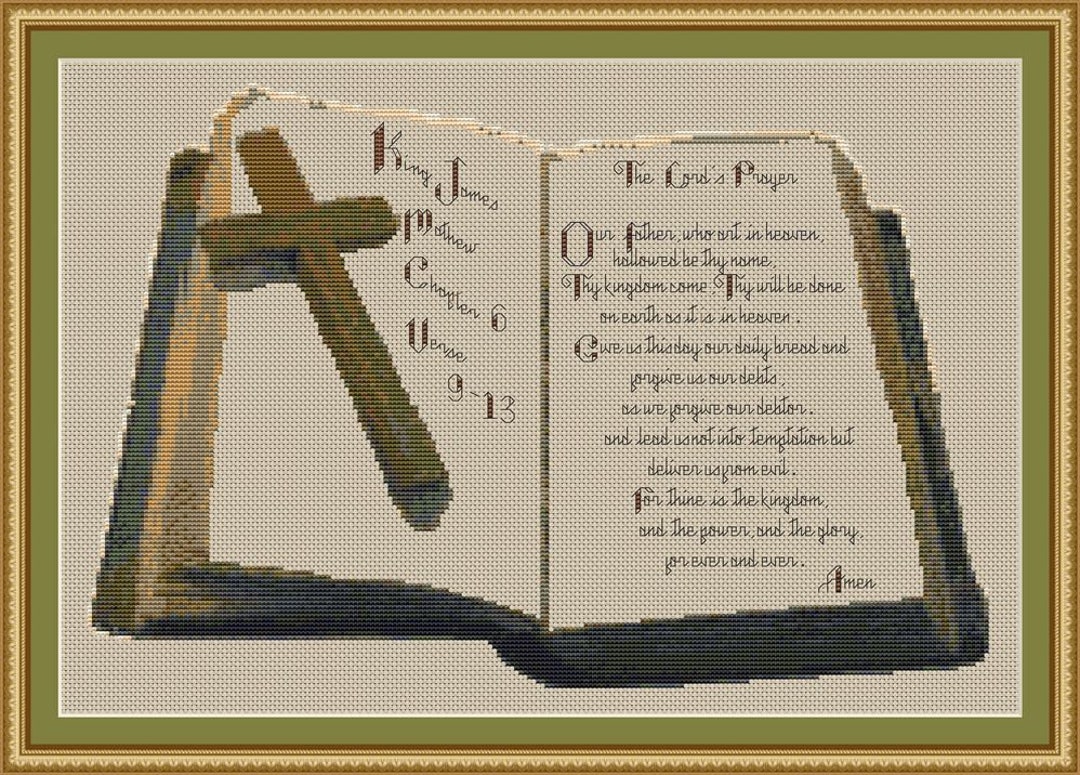 King James
Mathew
Chapter 6
Verse
9-13
The Lord's Prayer
Our Father, who art in heaven,
hallowed be thy name,
Thy kingdom come, Thy will be done
on earth as it is in heaven.
Give us this day our daily bread and
forgive us our debts,
as we forgive our debtor.
and lead us not into temptation but
deliver us from evil.
for thine is the kingdom,
and the power, and the glory,
for ever and ever.
Amen